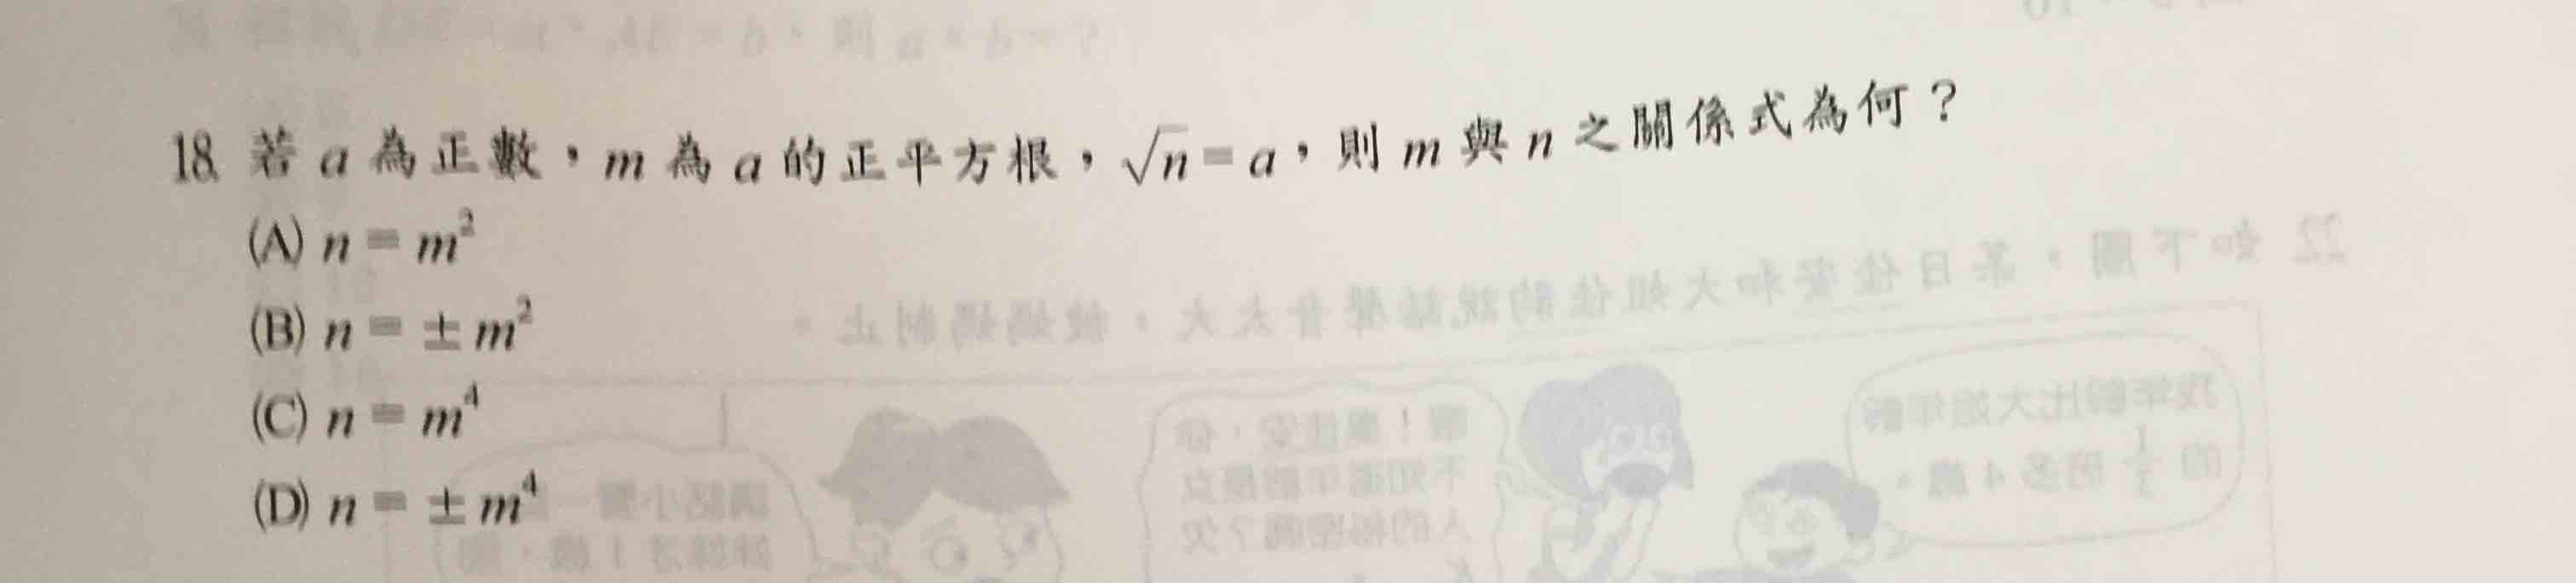 18. 若 a 為正數，m 為 a 的正平方根，√n = a，則 m 與 n 之關係式為何？
(A) n = m²
(B) n = ± m²
(C) n = m⁴
(D) n = ± m⁴